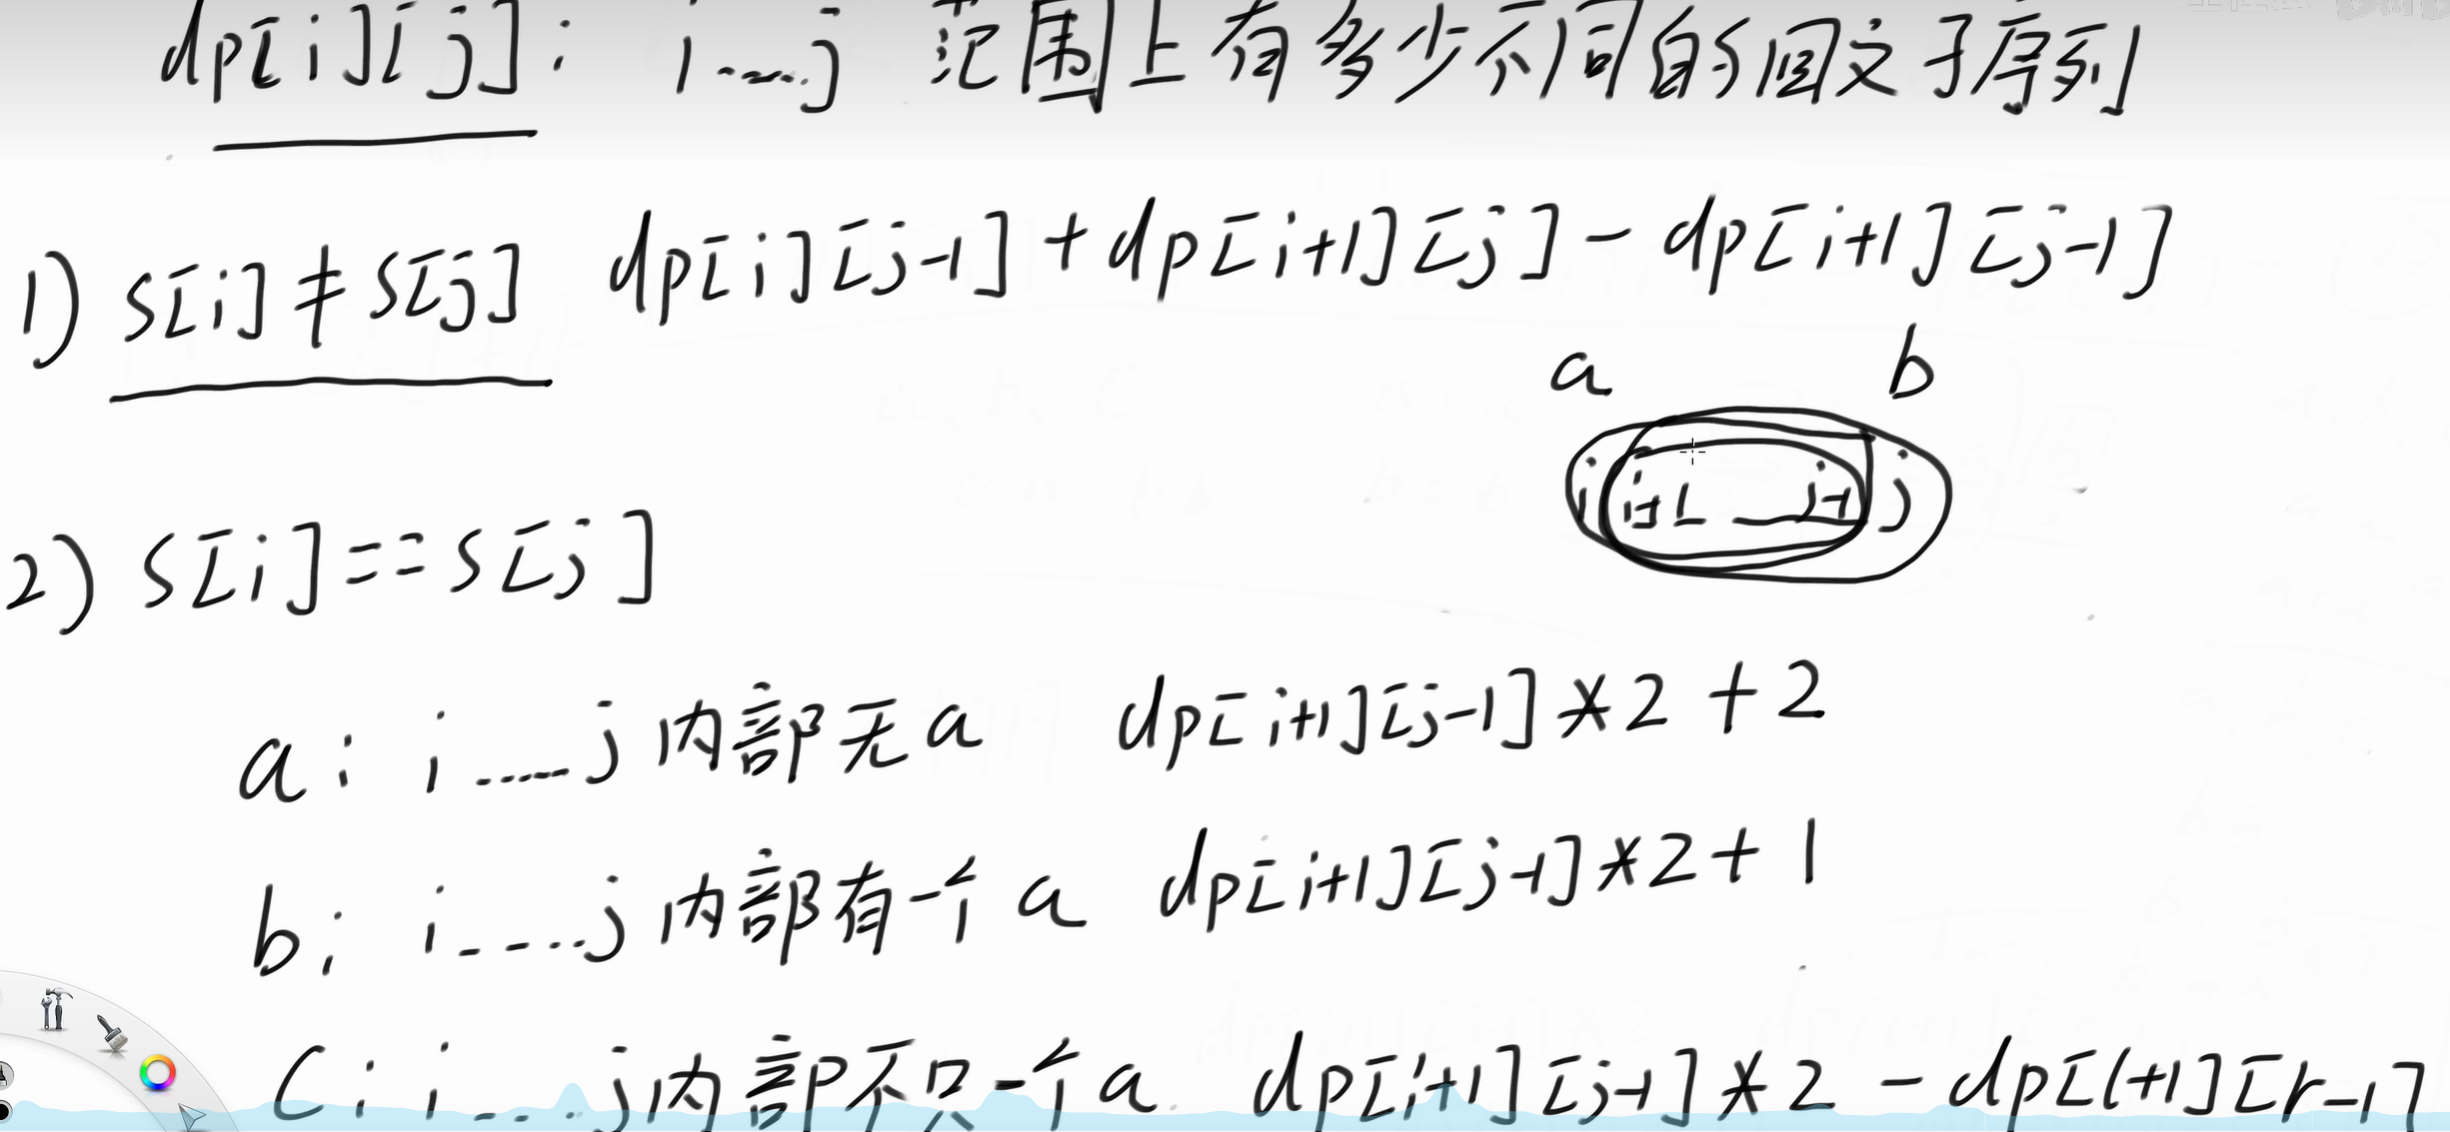 dp[i][j]: i....j 范围上有多少不同的回文子序列
1) s[i]≠s[j] dp[i][j-1]+dp[i+1][j]-dp[i+1][j-1]
a b
i i+1 j-1 j
2) s[i]==s[j]
a: i.....j 内部无a dp[i+1][j-1]*2+2
b: i....j 内部有一个a dp[i+1][j-1]*2+1
c: i....j 内部不只一个a dp[i+1][j-1]*2-dp[l+1][r-1]